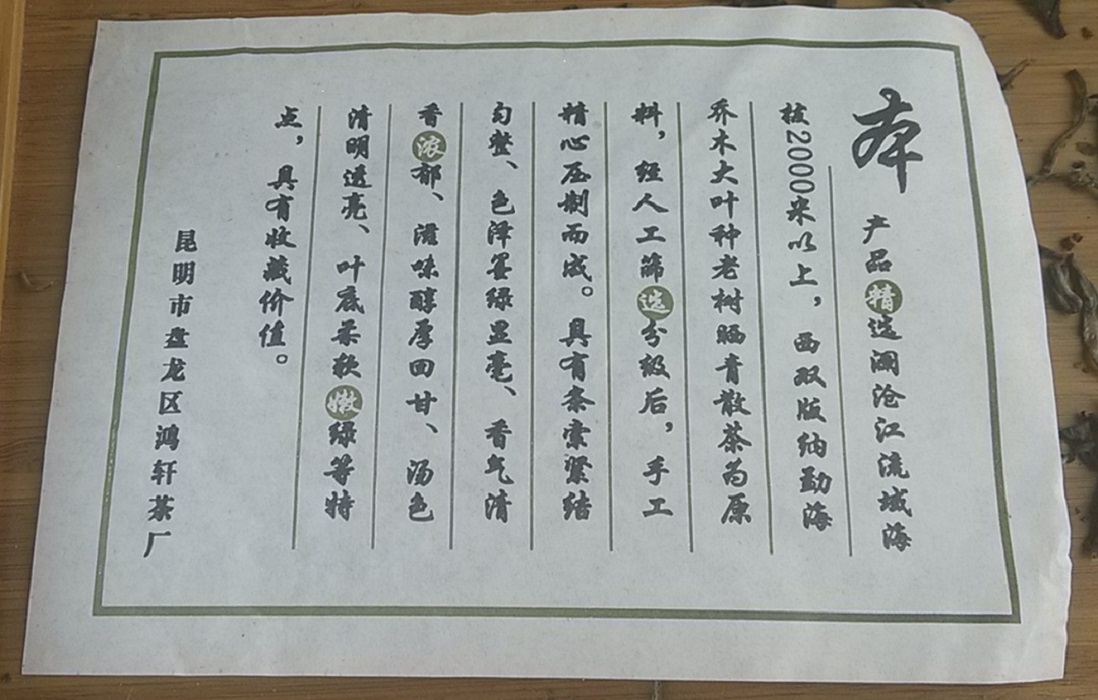 本产品精选澜沧江流域海
拔2000米以上，西双版纳勐海
乔木大叶种老树晒青散茶为原
料，经人工筛选分级后，手工
精心压制而成。具有条索紧结
匀整、色泽墨绿显毫、香气清
香浓郁、滋味醇厚回甘、汤色
清明透亮、叶底柔软嫩绿等特
点，具有收藏价值。
昆明市盘龙区鸿轩茶厂